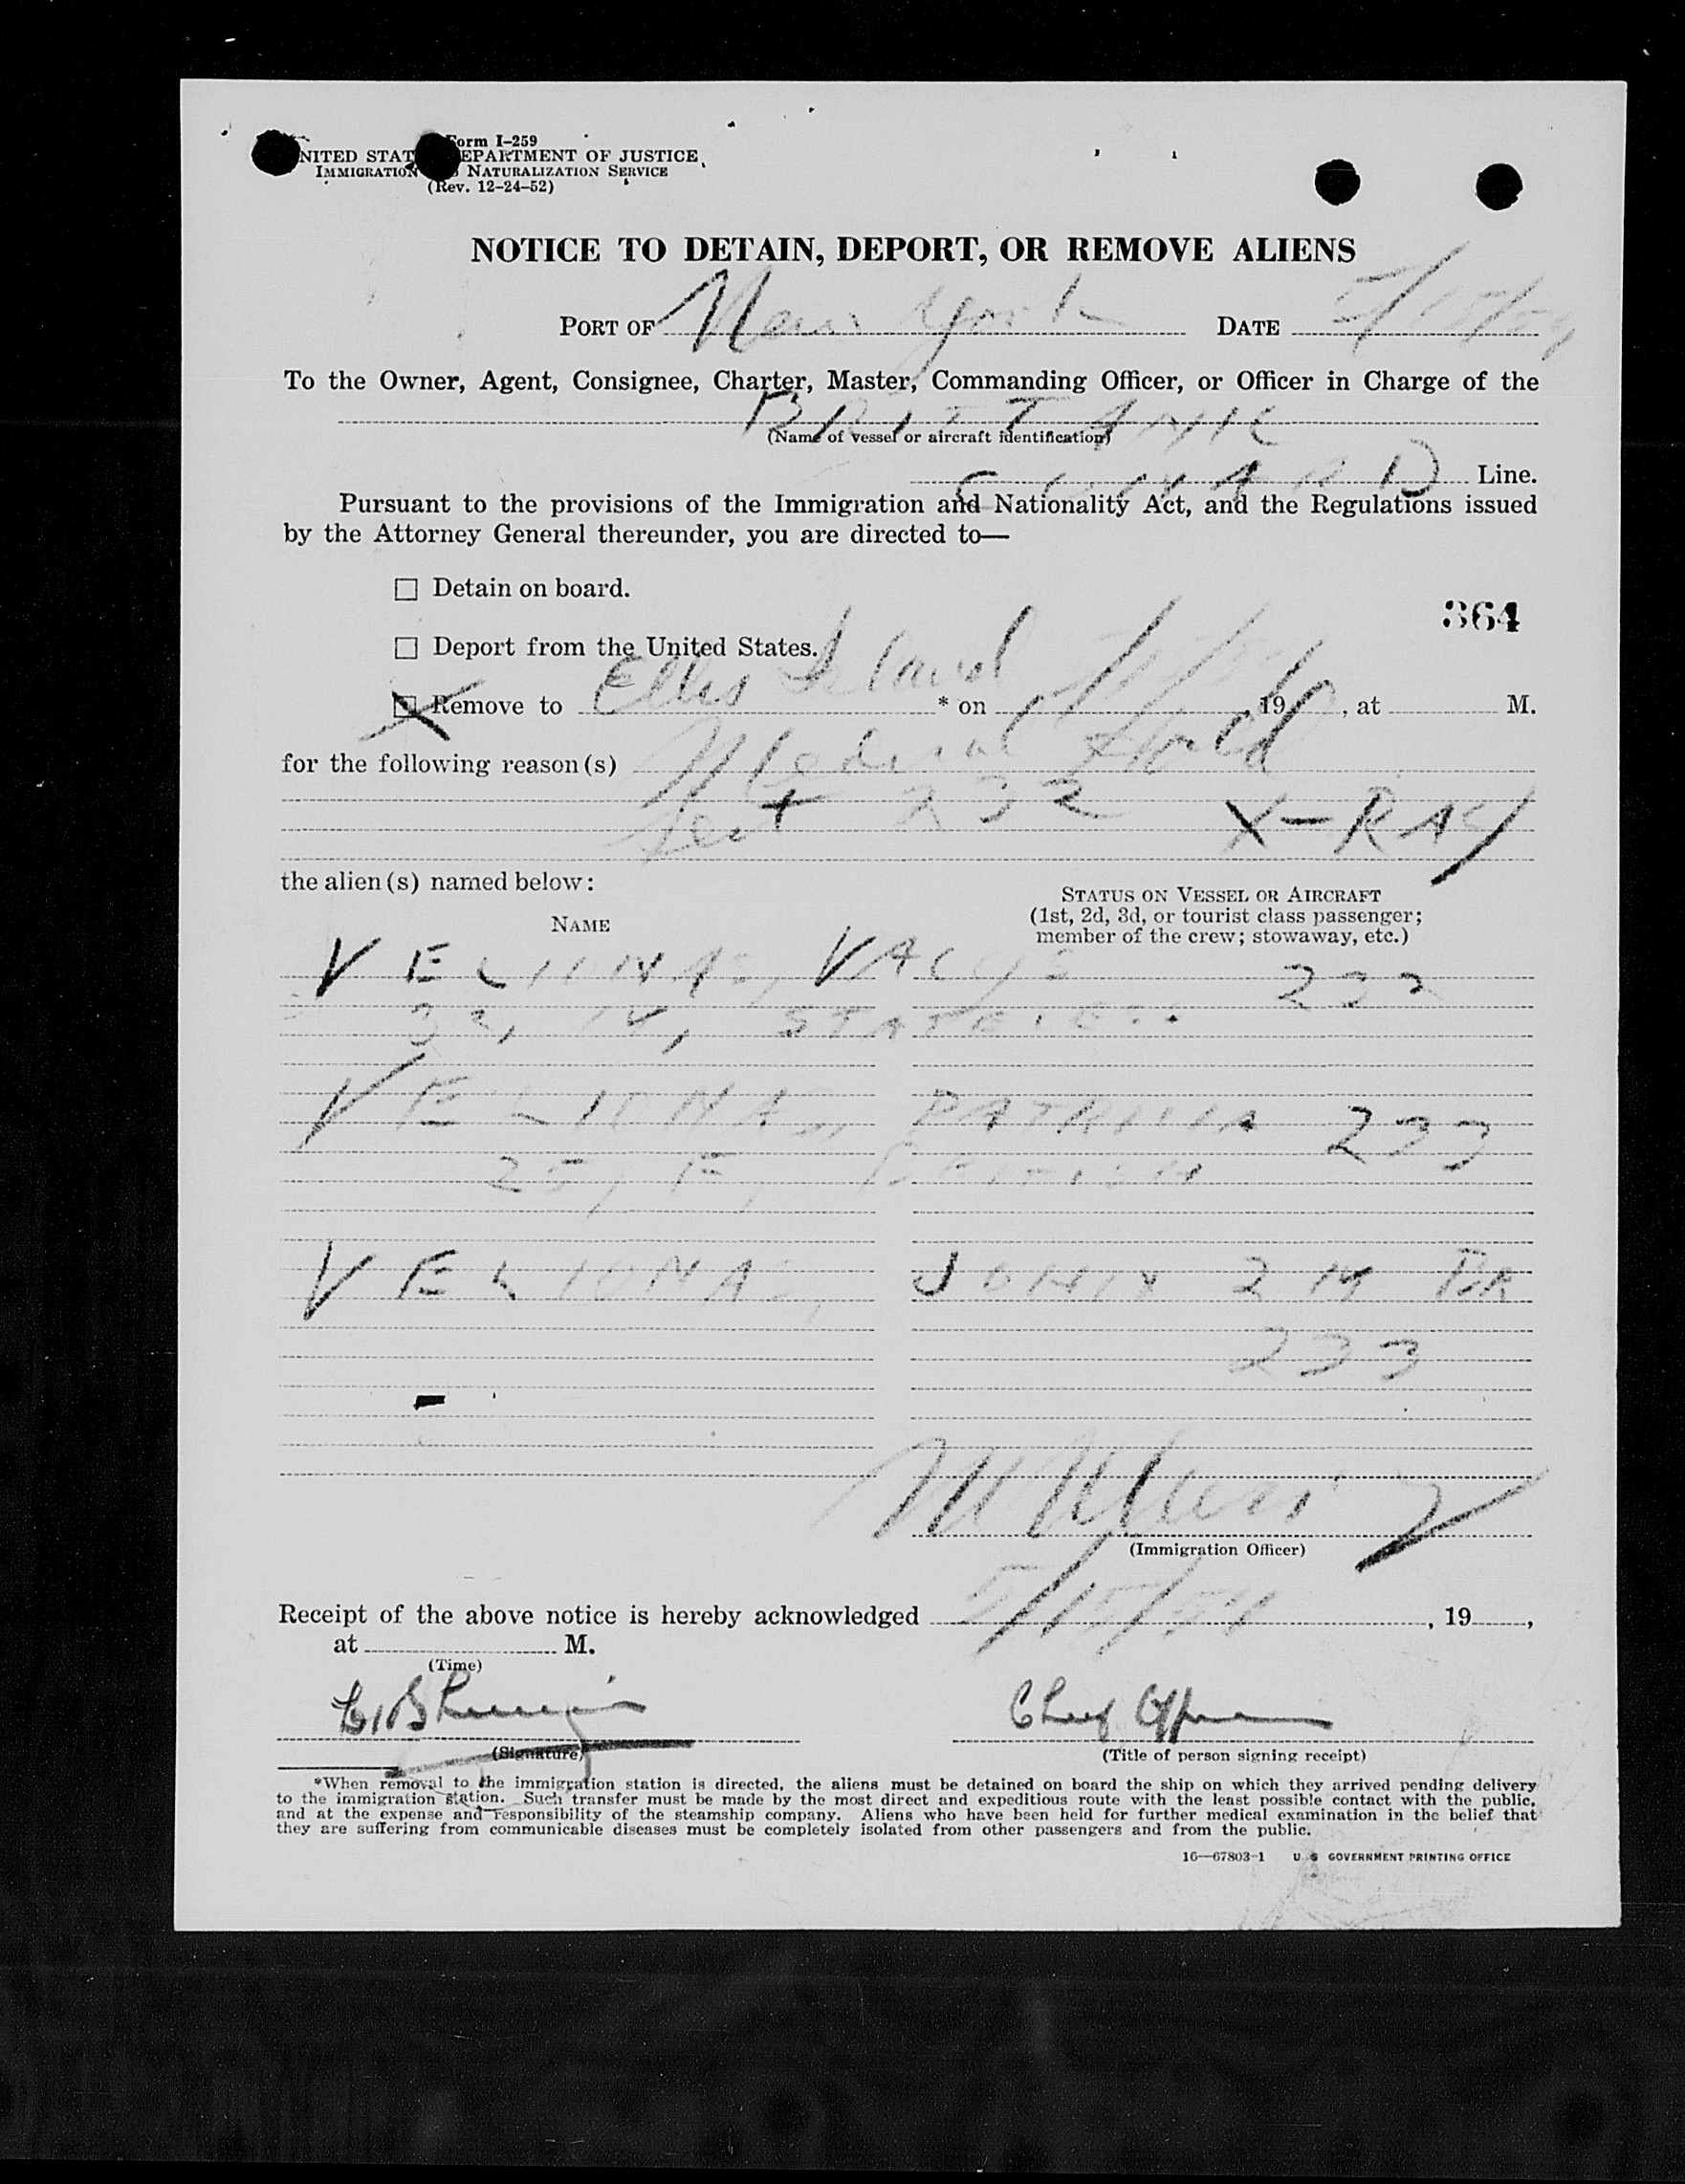 Form I-259
UNITED STATES DEPARTMENT OF JUSTICE
IMMIGRATION AND NATURALIZATION SERVICE
(Rev. 12-24-52)
NOTICE TO DETAIN, DEPORT, OR REMOVE ALIENS
PORT OF New York DATE 5/15/54
To the Owner, Agent, Consignee, Charter, Master, Commanding Officer, or Officer in Charge of the
BRITTANIC
(Name of vessel or aircraft identification)
CUNARD Line.
Pursuant to the provisions of the Immigration and Nationality Act, and the Regulations issued
by the Attorney General thereunder, you are directed to—
Detain on board.
364
Deport from the United States.
Remove to Ellis Island * on , 19 , at M.
for the following reason(s) Medical Hold
Sect 232 X-RAY
the alien(s) named below:
STATUS ON VESSEL OR AIRCRAFT
NAME (1st, 2d, 3d, or tourist class passenger;
member of the crew; stowaway, etc.)
VELIONAS, 232
32, M, STATELESS
VELIONAS, PATRICIA 233
25, F, BRITISH
VELIONAS, 2 M BR
233
(Immigration Officer)
Receipt of the above notice is hereby acknowledged 5/15/54, 19 ,
at M.
(Time)
Chief Officer
(Signature) (Title of person signing receipt)
*When removal to the immigration station is directed, the aliens must be detained on board the ship on which they arrived pending delivery
to the immigration station. Such transfer must be made by the most direct and expeditious route with the least possible contact with the public,
and at the expense and responsibility of the steamship company. Aliens who have been held for further medical examination in the belief that
they are suffering from communicable diseases must be completely isolated from other passengers and from the public.
16—67803-1 U S GOVERNMENT PRINTING OFFICE